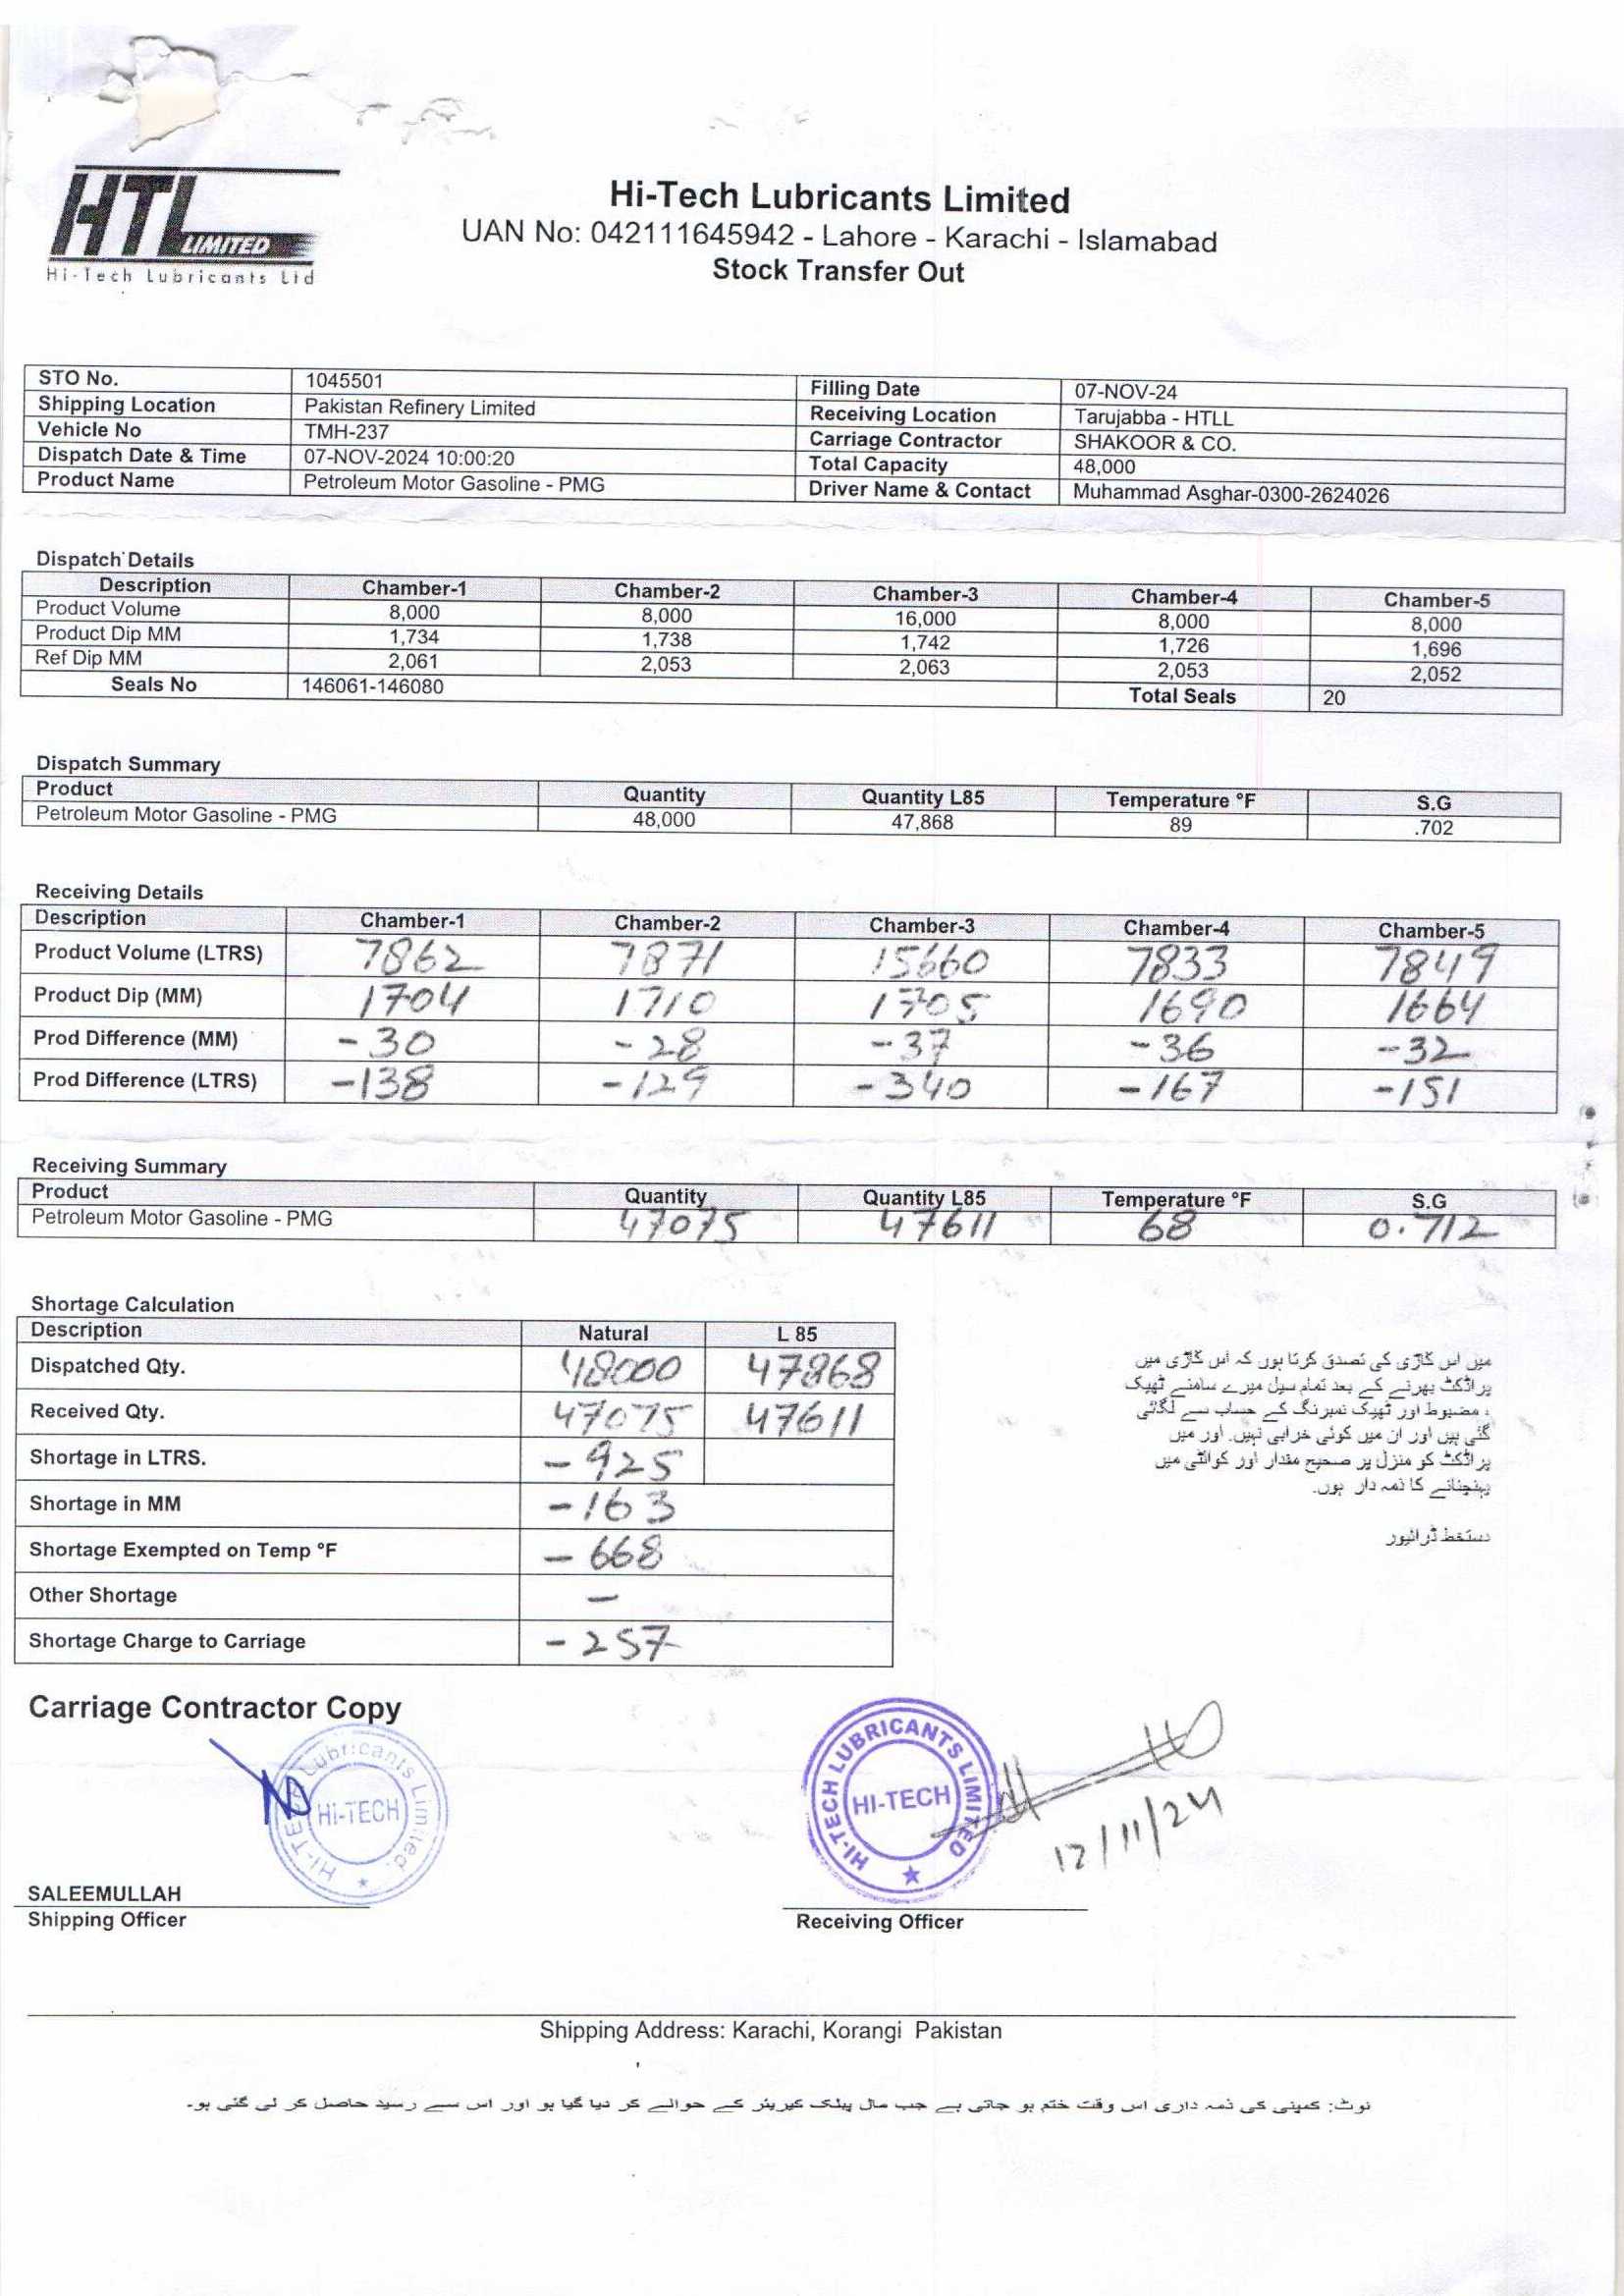 HTL
LIMITED
Hi-Tech Lubricants Ltd
Hi-Tech Lubricants Limited
UAN No: 042111645942 - Lahore - Karachi - Islamabad
Stock Transfer Out
STO No. 1045501 Filling Date 07-NOV-24
Shipping Location Pakistan Refinery Limited Receiving Location Tarujabba - HTLL
Vehicle No TMH-237 Carriage Contractor SHAKOOR & CO.
Dispatch Date & Time 07-NOV-2024 10:00:20 Total Capacity 48,000
Product Name Petroleum Motor Gasoline - PMG Driver Name & Contact Muhammad Asghar-0300-2624026
Dispatch Details
Description Chamber-1 Chamber-2 Chamber-3 Chamber-4 Chamber-5
Product Volume 8,000 8,000 16,000 8,000 8,000
Product Dip MM 1,734 1,738 1,742 1,726 1,696
Ref Dip MM 2,061 2,053 2,063 2,053 2,052
Seals No 146061-146080 Total Seals 20
Dispatch Summary
Product Quantity Quantity L85 Temperature °F S.G
Petroleum Motor Gasoline - PMG 48,000 47,868 89 .702
Receiving Details
Description Chamber-1 Chamber-2 Chamber-3 Chamber-4 Chamber-5
Product Volume (LTRS) 7862 7871 15660 7833 7849
Product Dip (MM) 1704 1710 1705 1690 1664
Prod Difference (MM) -30 -28 -37 -36 -32
Prod Difference (LTRS) -138 -129 -340 -167 -151
Receiving Summary
Product Quantity Quantity L85 Temperature °F S.G
Petroleum Motor Gasoline - PMG 47075 47611 68 0.712
Shortage Calculation
Description Natural L 85
Dispatched Qty. 48000 47868
Received Qty. 47075 47611
Shortage in LTRS. -925
Shortage in MM -163
Shortage Exempted on Temp °F -668
Other Shortage -
Shortage Charge to Carriage -257
میں اس گاڑی کی تصدق کرتا ہوں کہ اس گاڑی میں
پراڈکٹ بھرنے کے بعد تمام سیل میرے سامنے ٹھیک
، مضبوط اور ٹھیک نمبرنگ کے حساب سے لگائی
گئی ہیں اور ان میں کوئی خرابی نہیں۔ اور میں
پراڈکٹ کو منزل پر صحیح مقدار اور کوالٹی میں
پہنچانے کا ذمہ دار ہوں۔
دستخط ڈرائیور
Carriage Contractor Copy
Hi-TECH Lubricants Limited.
Hi-TECH
HI-TECH LUBRICANTS LIMITED
HI-TECH
12/11/24
SALEEMULLAH
Shipping Officer
Receiving Officer
Shipping Address: Karachi, Korangi Pakistan
نوٹ: کمپنی کی ذمہ داری اس وقت ختم ہو جاتی ہے جب مال پبلک کیریئر کے حوالے کر دیا گیا ہو اور اس سے رسید حاصل کر لی گئی ہو۔